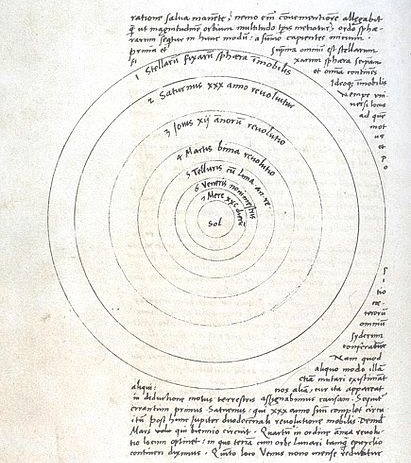 ratione salva manente, nemo em̄ convenientiorē allegabit
q̄ ut magnitudinē orbium multitudo tp̄is metiatur, ordo sphæ-
rarum seqtur in hunc modū: a summo capientes initium.
prima et suprema omniū est stellarum
fixarum sphæra seipsam
et omīa continēs
Ideoq; īmobilis
nempe uni-
versi locus
ad quē
mot
us et
po
1 Stellarū fixarū sphæra īmobilis
2 Saturnus xxx anno revolvitur
3 Jovis xij annorū revolutio
4 Martis bima revolutio
5 Telluris cū luna an. re.
6 Veneris nonimestris
7 Merc xxc dierū
Sol
si
tio
cæ
terorū
omniū
syderum
conferatur
Nam quod
aliquo modo illā
etiā mutari existimāt
aliqui: nos aliā, cur ita appareat
in deductione motus terrestris assignabimus causam. Sequitur
errantium primus Saturnus: qui xxx anno suū complet circu
itū post hunc Jupiter duodecennali revolutione mobilis. Deinde
Mars volū qui biennio circuit. Quartū in ordine añua revolu
tio locum optinet: in quo terrā cum orbe lunari tanq̄ epicyclio
contineri diximus. Quinto loco Venus nono mense reducitur